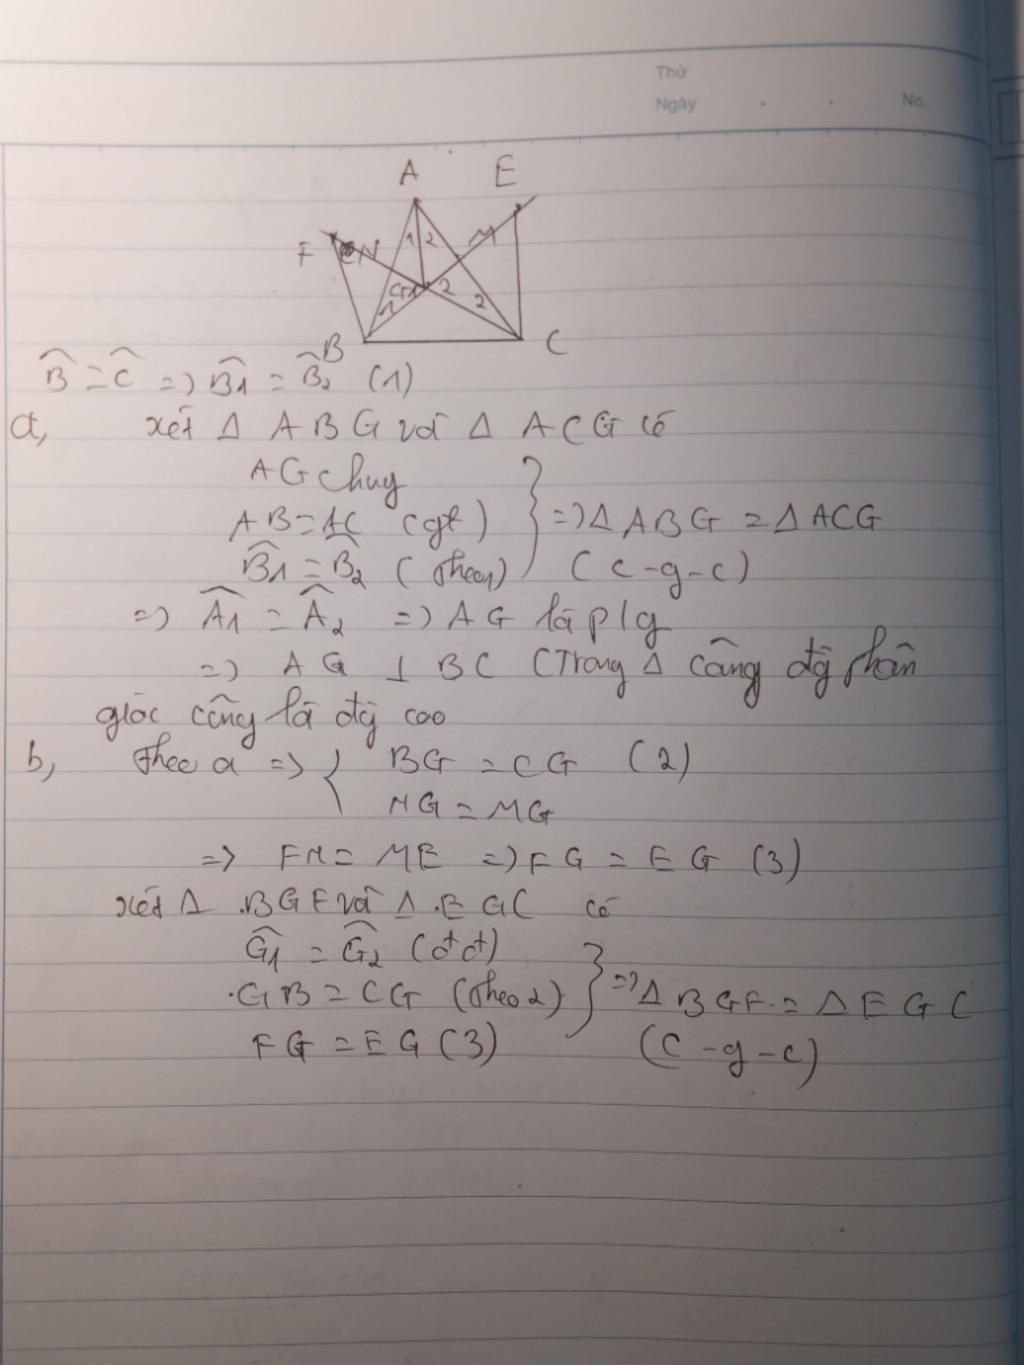 Thứ
Ngày . . No.
A E
F N 1 2 M
G1 2
1 2
B C
B̂ = Ĉ => B̂1 = B̂2 (1)
a, xét Δ ABG và Δ ACG có
AG chung
AB = AC (gt)
B̂1 = B̂2 (theo 1) } => Δ ABG = Δ ACG
(c-g-c)
=> Â1 = Â2 => AG là p/g
=> AG ⊥ BC (Trong Δ cân đg phân
giác cũng là đg cao
b, theo a => { BG = CG (2)
NG = MG
=> FN = ME => FG = EG (3)
xét Δ BGF và Δ EGC có
Ĝ1 = Ĝ2 (đđ)
GB = CG (theo 2) } => Δ BGF = Δ EGC
FG = EG (3) (c-g-c)